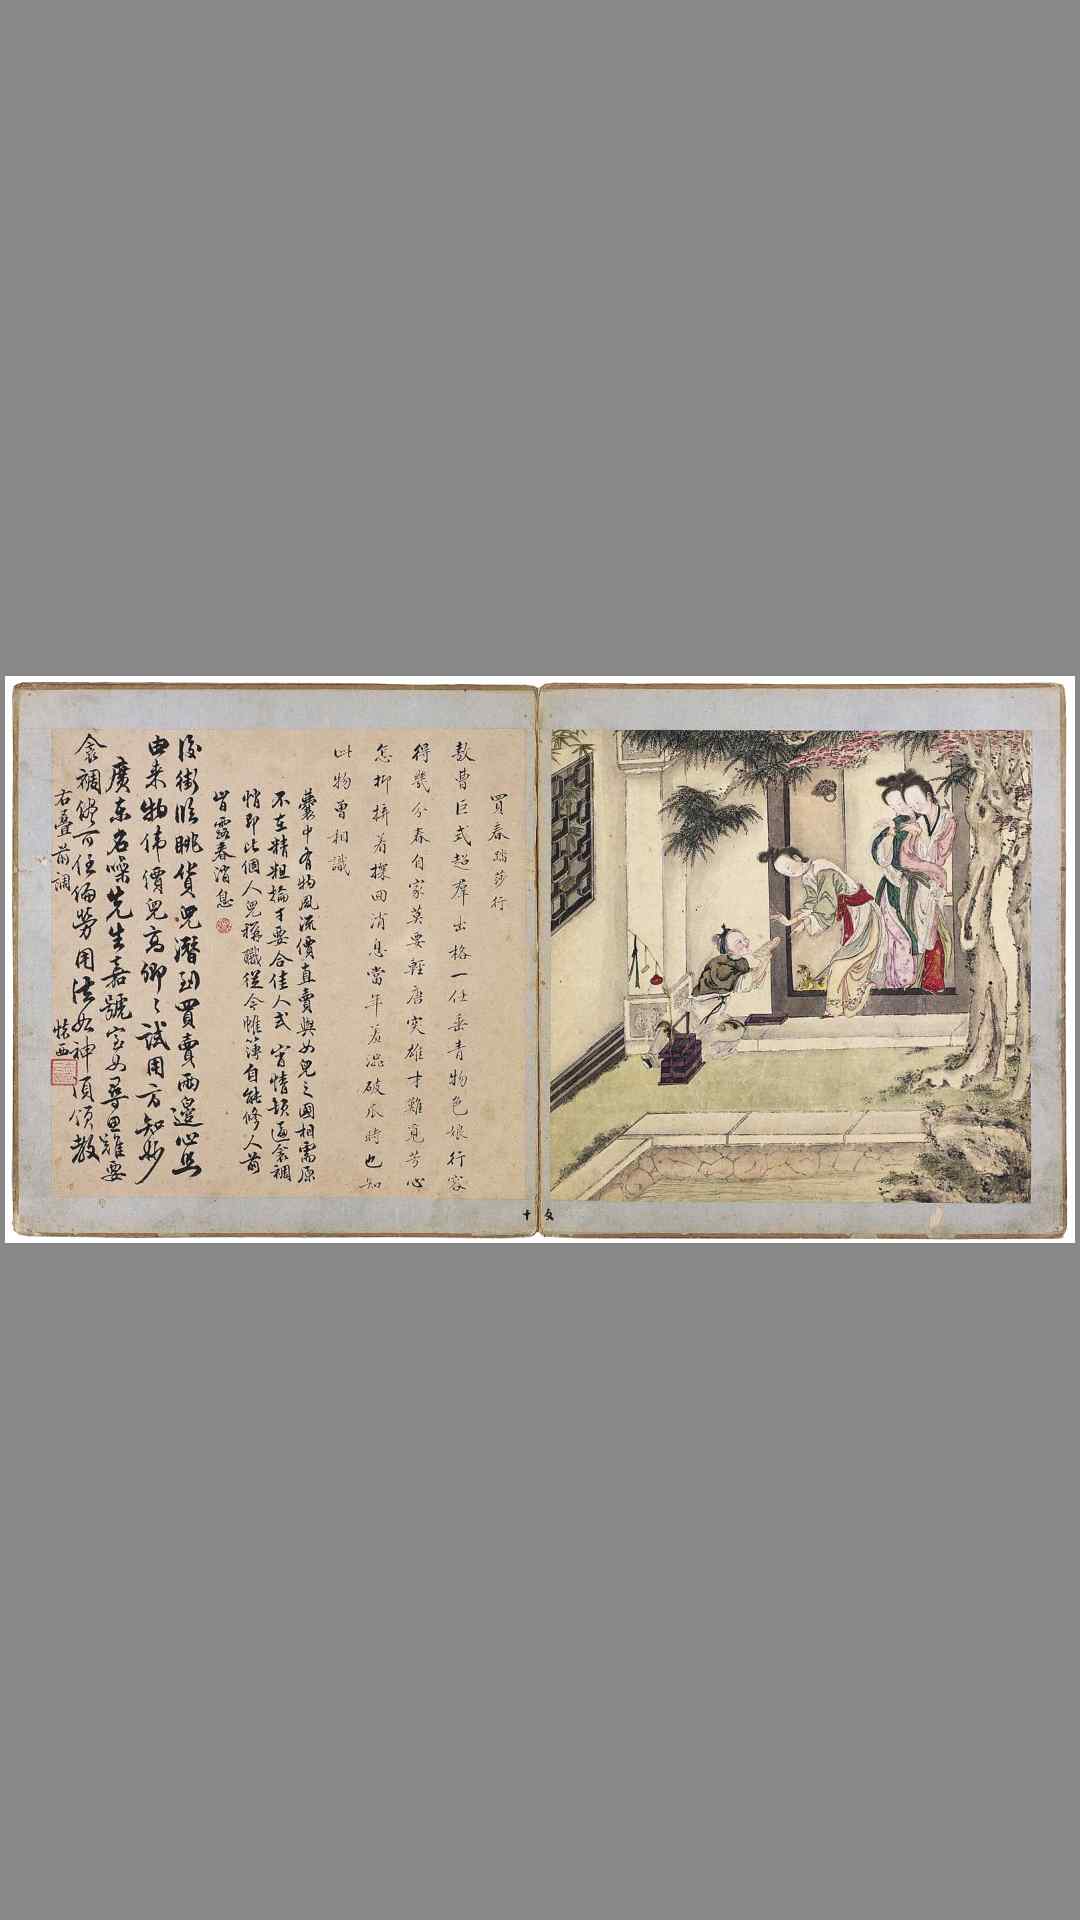 買春踏莎行
敖曹巨式超群出格一任垂青物色娘行容
得幾分春自家莫要輕唐突雄才難覓芳心
怎抑拚着探回消息當年羞澁破瓜時也知
此物曾相識
囊中有物風流價直賣與女兒之國相需原
不在精粗掄才要合佳人式宵情頻逼衾裯
悄即此個人兒稱職從今帷簿自能修人前
肯露春消息
後街临眺貨兒潛到買賣兩邊心照
由來物偉價兒高卿卿試用方知妙
廣東名噪先生嘉號室女尋思雖要
衾裯儘可任偏勞用法如神須領教
右叠前調
十